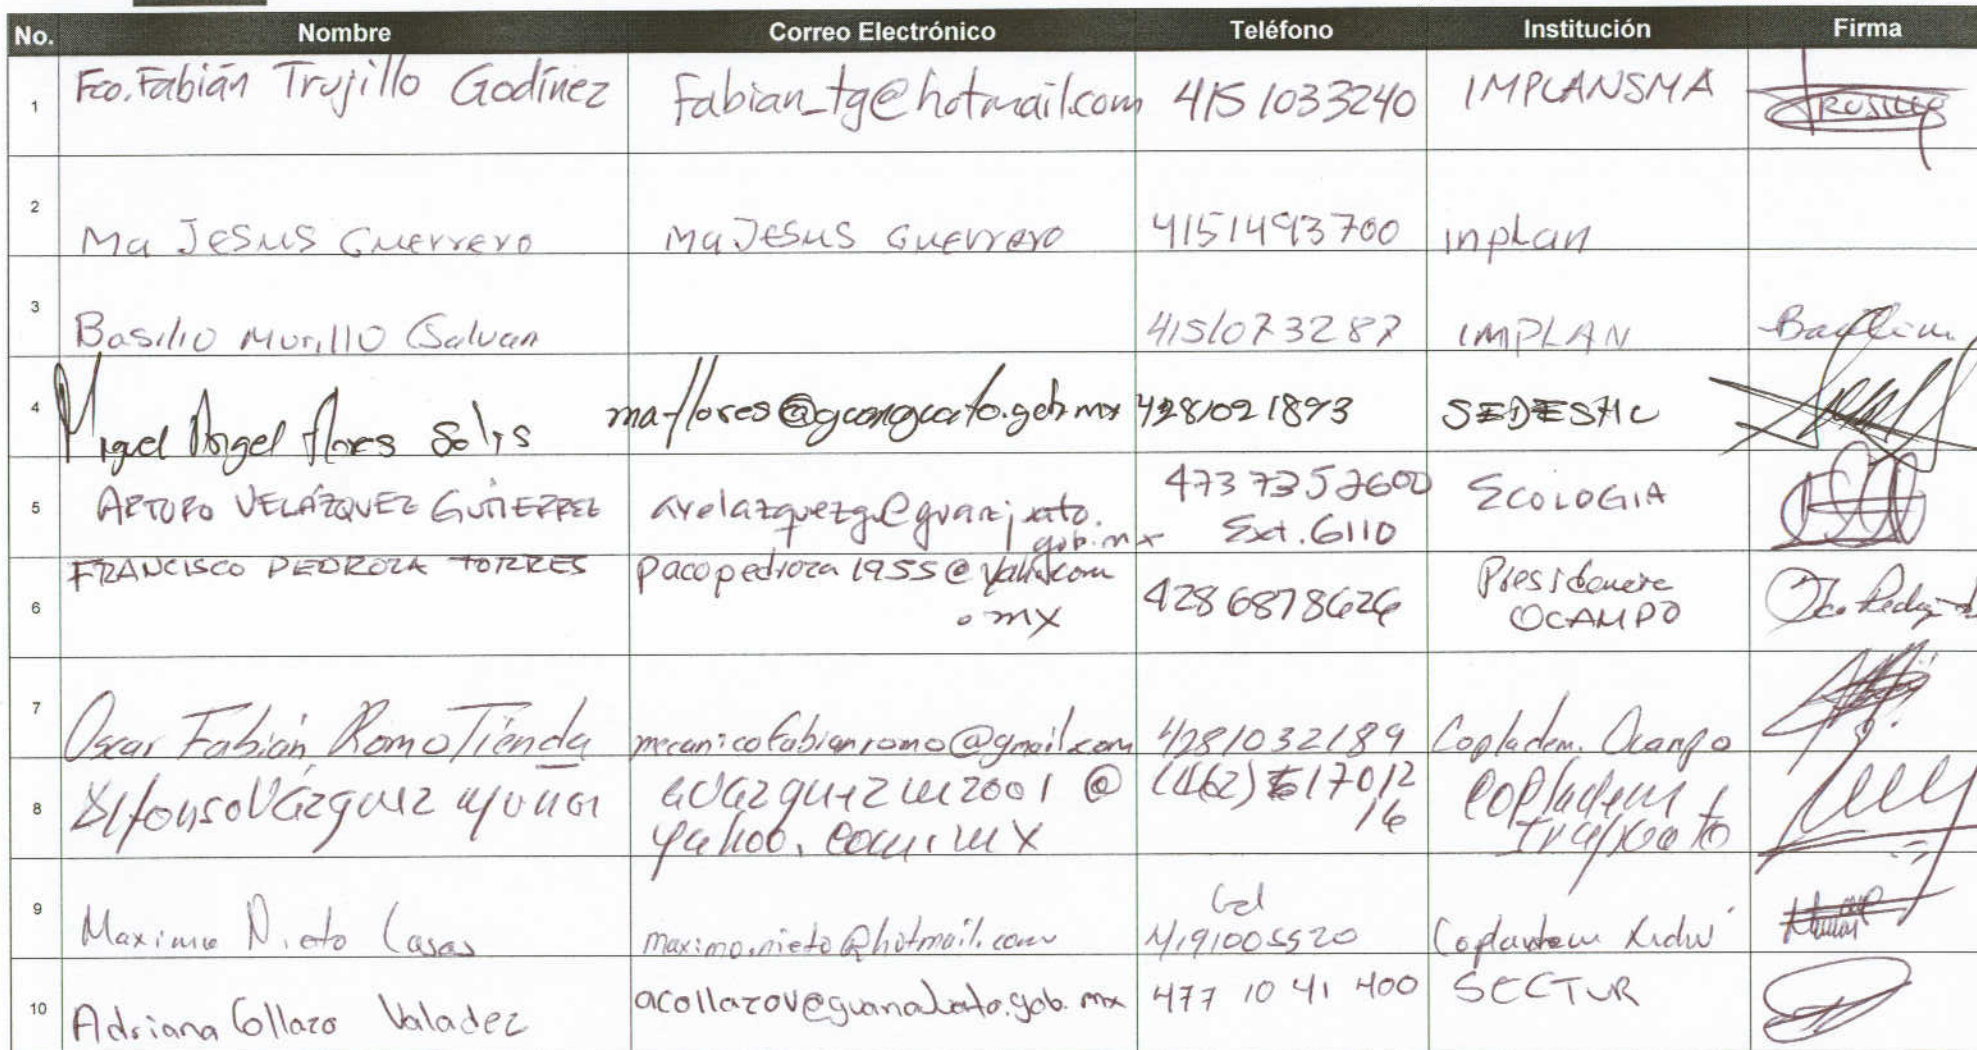 No. Nombre Correo Electrónico Teléfono Institución Firma
1 Fco. Fabián Trujillo Godínez fabian_tg@hotmail.com 4151033240 IMPLANSMA Trujillo
2 Ma JESUS Guerrero Ma JESUS Guerrero 4151493700 inplan
3 Basilio Murillo Galvan 4151073287 IMPLAN
4 Miguel Angel flores Solis ma-flores@guanajuato.gob.mx 4281021893
5 ARTURO VELÁZQUEZ GUTIERREZ avelazquezg@guanajuato. 4737352600 ECOLOGIA
gob.mx Ext. 6110
6 FRANCISCO PEDROZA TORRES pacopedroza1955@yahoo.com 4286878626
.mx OCAMPO
7 Oscar Fabián Romo Tienda mecanicofabianromo@gmail.com 4281032189 Copladem. Ocampo
8 Alfonso Vázquez avazquezm2001@ (462) 617012 Copladem
yahoo.com.mx 16 Irapuato
9 Maximo Nieto Casas maximo.nieto@hotmail.com Cel Copladem Xichú
4191005520
10 Adriana Collazo Valadez acollazov@guanajuato.gob.mx 477 10 41 400 SECTUR